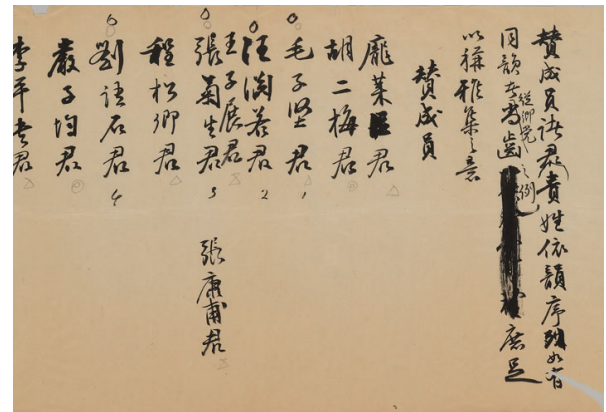 贊成員諸君貴姓依韻序列如有
同韻者為齒從鄉黨之例庶足
以稱雅集之意
贊成員
龐萊臣君
胡二梅君
毛子堅君 1
汪淵若君 2
王子展君
張菊生君 3 張庸甫君
程松卿君
劉語石君 4
嚴子均君
李平書君